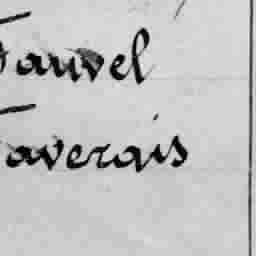 Fauvel
Faverais